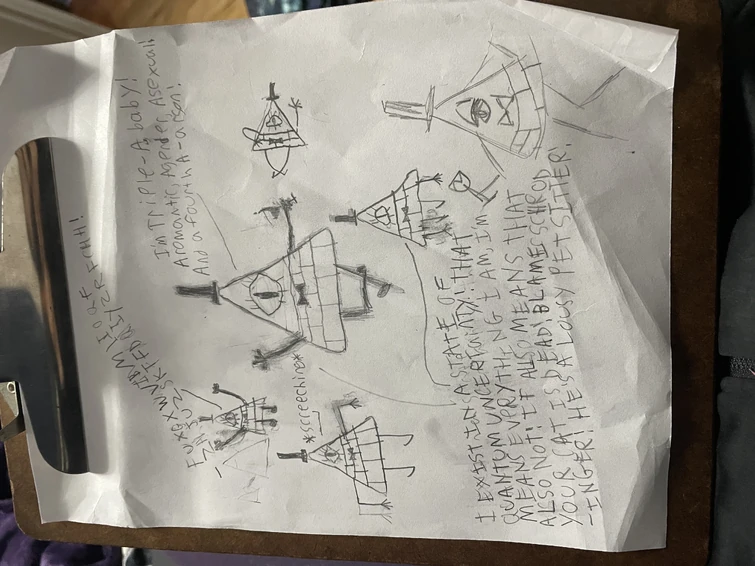 I'm Triple-A, baby!
Aromantic, Agender, Asexual!
And a fourth A-arson!
*screeching*
I EXIST IN A STATE OF
QUANTUM UNCERTAINTY! THAT
MEANS EVERYTHING I AM, I'M
ALSO NOT! IT ALSO MEANS THAT
YOUR CAT IS DEAD! BLAME SCHROD
-INGER! HE'S A LOUSY PET SITTER!